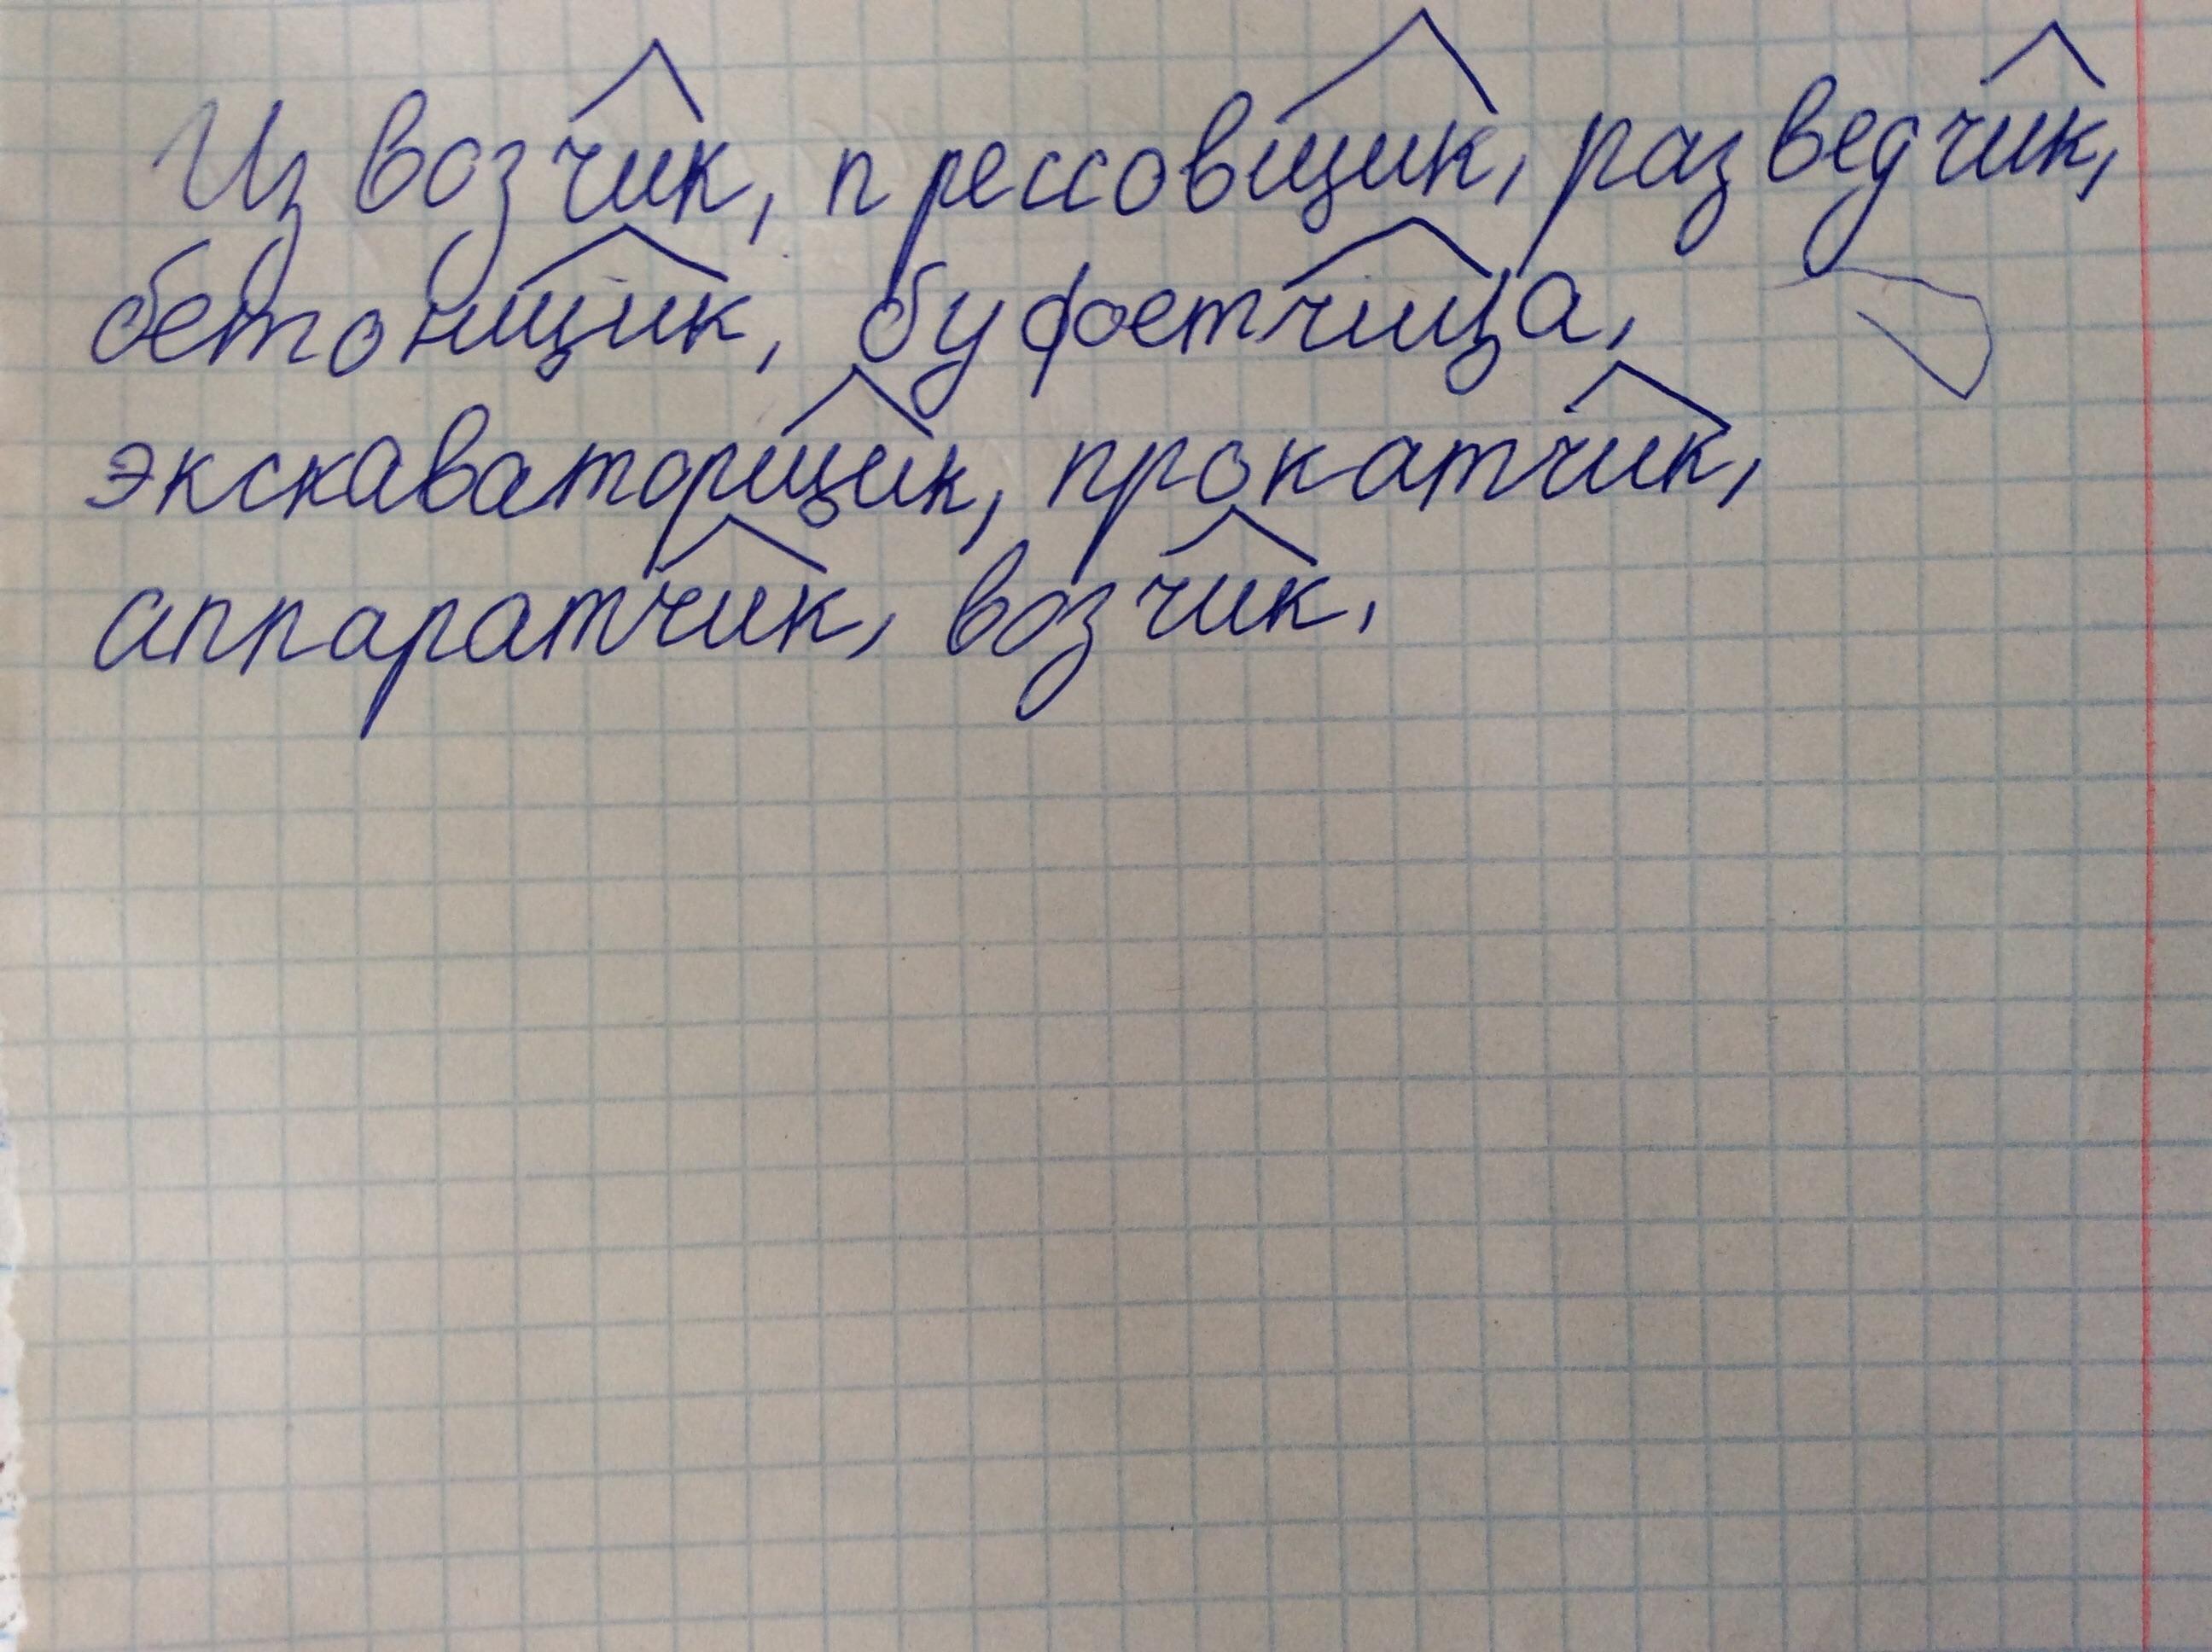 Извозчик, прессовщик, разведчик,
бетонщик, буфетчица,
экскаваторщик, прокатчик,
аппаратчик, возчик,